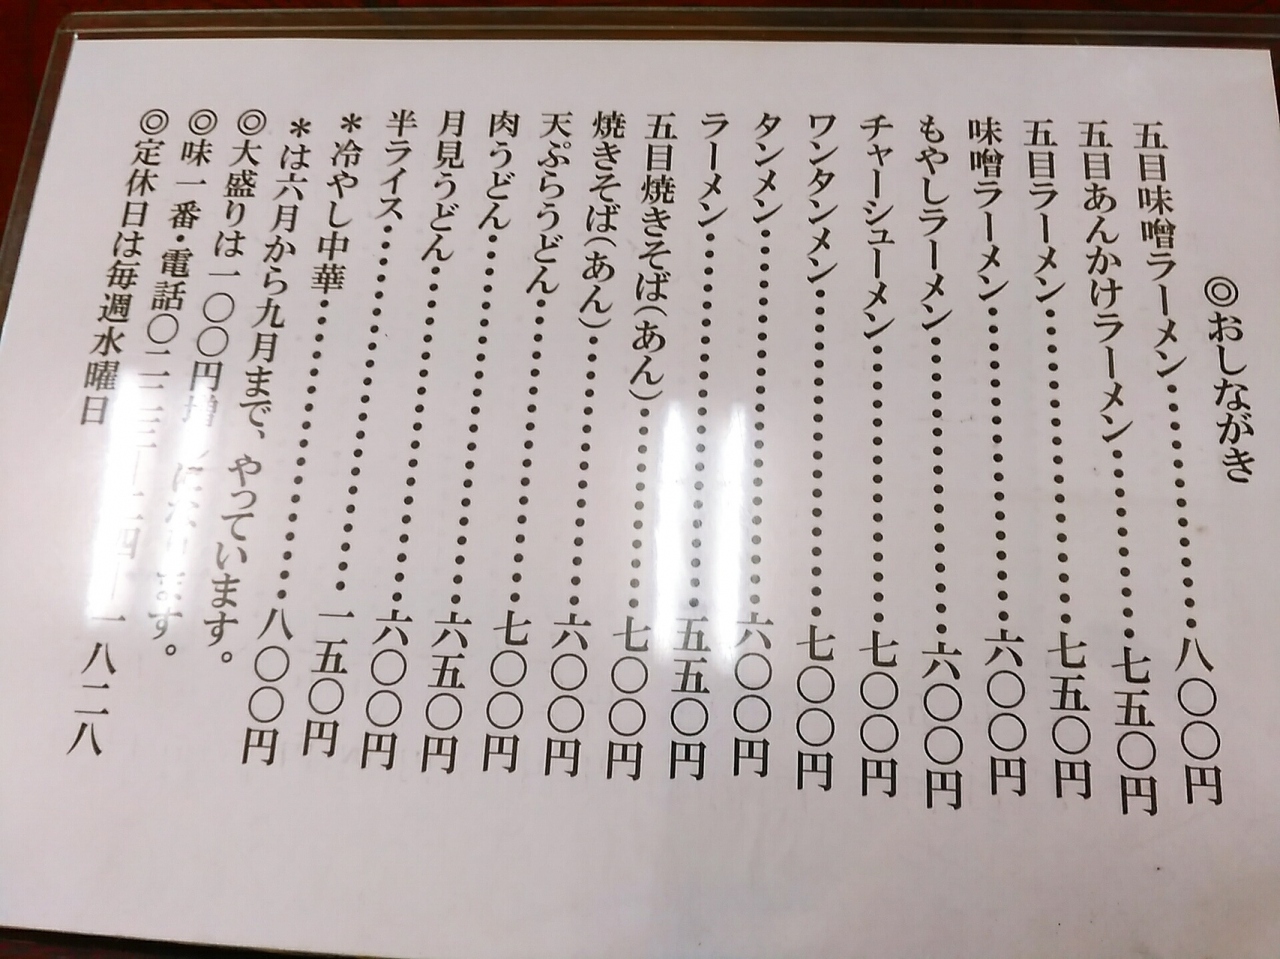 ◎おしながき
五目味噌ラーメン・・・・・・・・・・・・八〇〇円
五目あんかけラーメン・・・・・・・・・・七五〇円
五目ラーメン・・・・・・・・・・・・・・七五〇円
味噌ラーメン・・・・・・・・・・・・・・六〇〇円
もやしラーメン・・・・・・・・・・・・・六〇〇円
チャーシューメン・・・・・・・・・・・・七〇〇円
ワンタンメン・・・・・・・・・・・・・・七〇〇円
タンメン・・・・・・・・・・・・・・・・六〇〇円
ラーメン・・・・・・・・・・・・・・・・五五〇円
五目焼きそば(あん)・・・・・・・・・・七〇〇円
焼きそば(あん)・・・・・・・・・・・・六〇〇円
天ぷらうどん・・・・・・・・・・・・・・七〇〇円
肉うどん・・・・・・・・・・・・・・・・六五〇円
月見うどん・・・・・・・・・・・・・・・六〇〇円
半ライス・・・・・・・・・・・・・・・・一五〇円
＊冷やし中華・・・・・・・・・・・・・・八〇〇円
＊は六月から九月まで、やっています。
◎大盛りは一〇〇円増しになります。
◎味一番・電話〇二二三―二四―一八二八
◎定休日は毎週水曜日